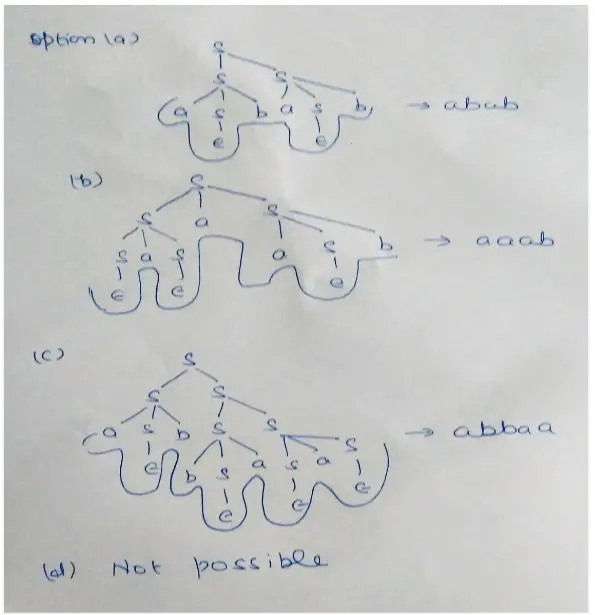 option (a)
S
S S
a S b a S b → abab
ε ε
(b)
S
S a S
S a S a S b → aaab
ε ε ε
(c)
S
S S
a S b S S → abbaa
ε b S a S a S
ε ε ε
(d) Not possible